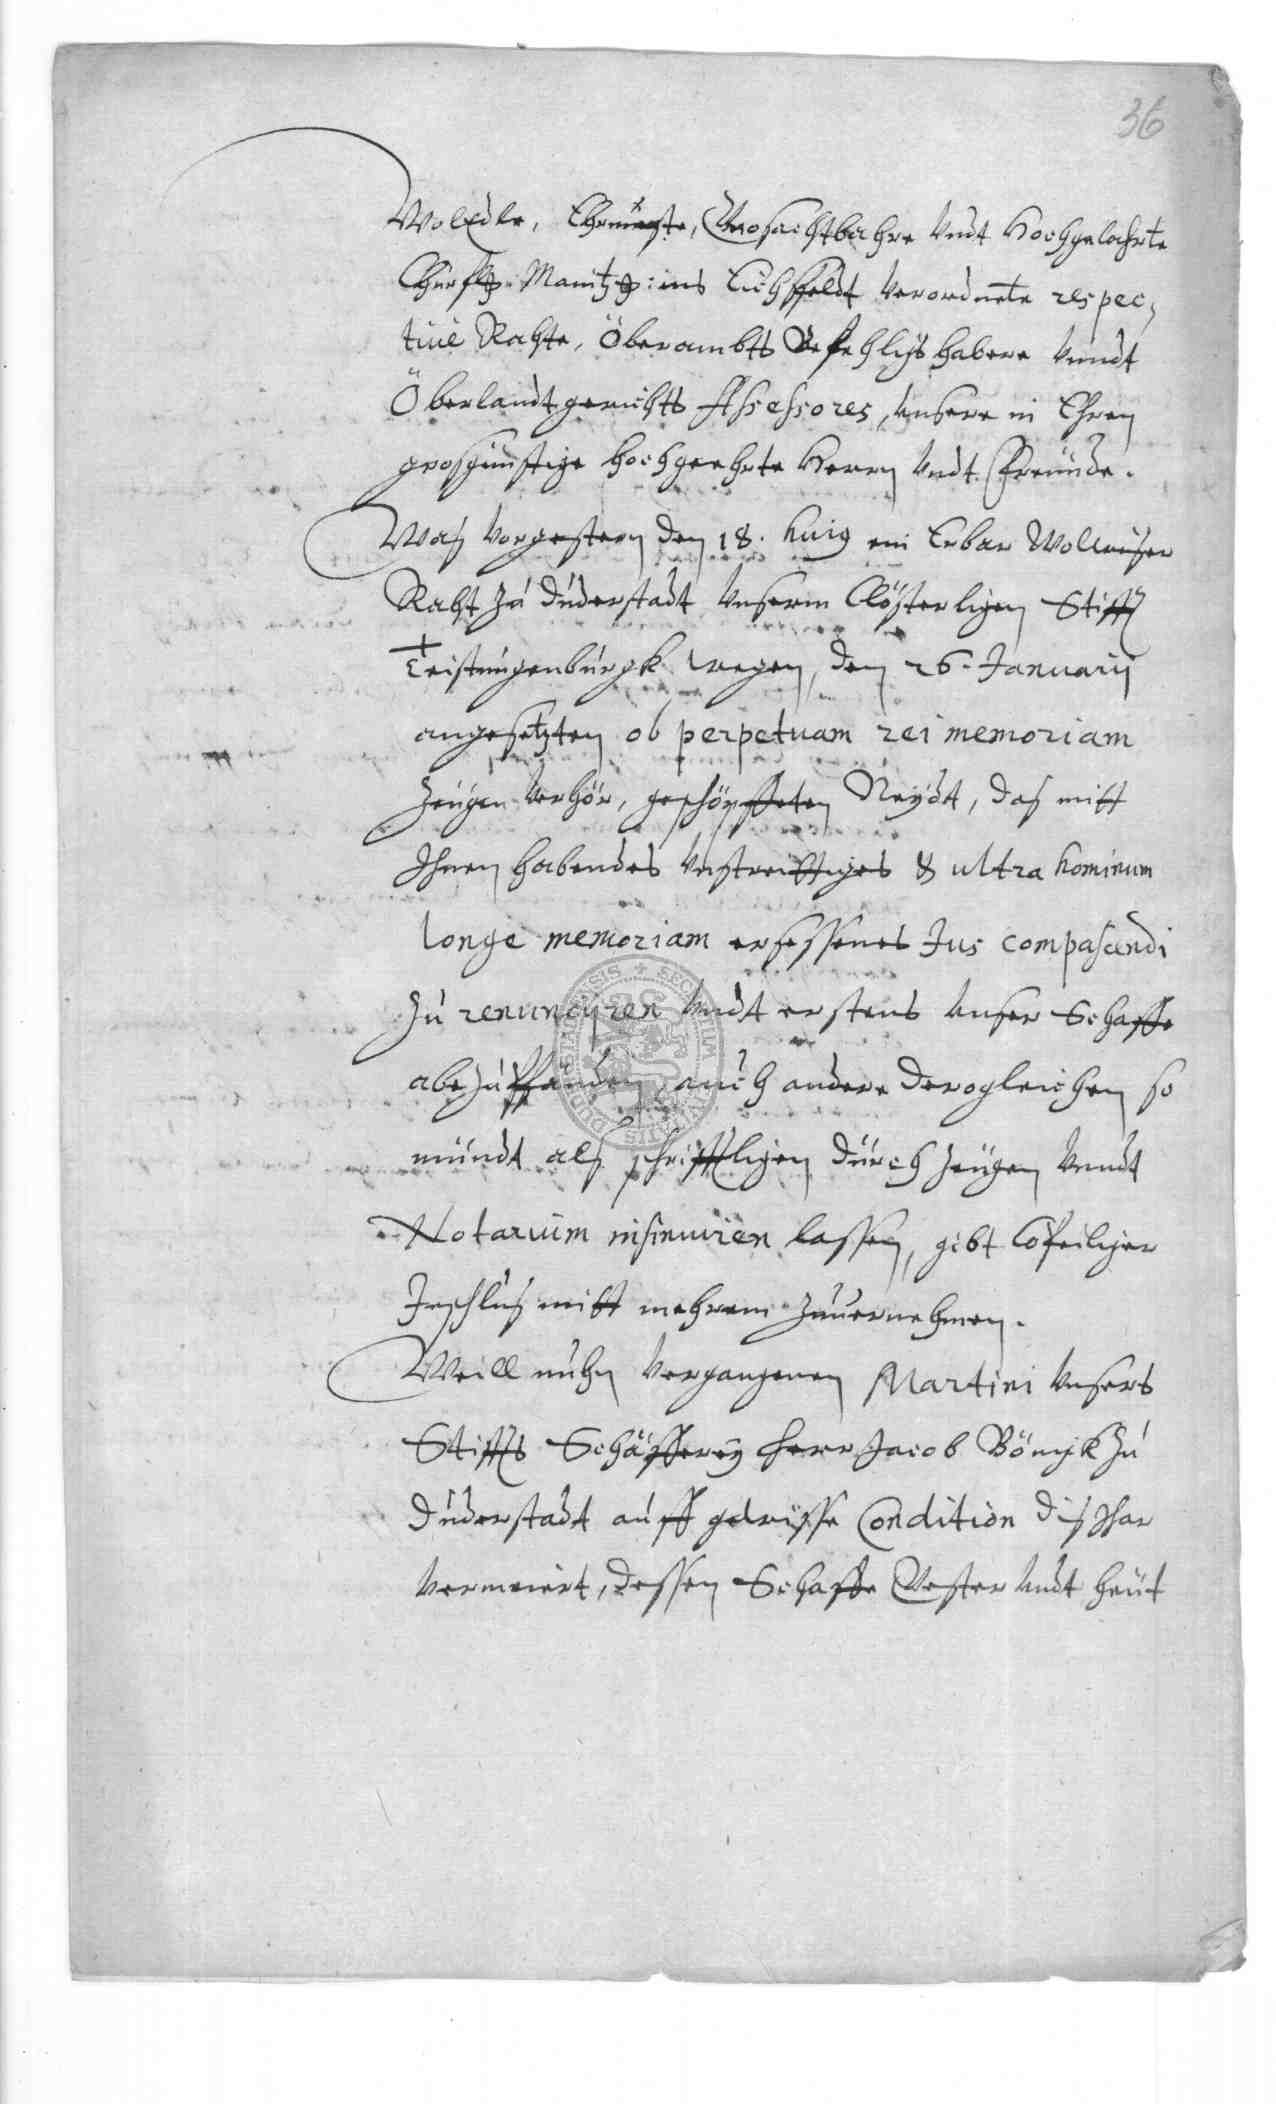 36
WolEdle, Ehrnveste, Grosachtbahre Undt Hochgelahrte
Churfl: Maintz: ins Eichsfeldt Verordnete respec,
tiue Rähte, Oberambts Befehlighabere Vnndt
Oberlandtgerichts Assessores, Unsere in Ehren
grosgünstige hochgeehrte Herrn Undt Freünde.
Waß Vorgestern den 18. huig ein Erbar Wolweiser
Raht zu Duderstadt Unserm Clösterligen Stifft
Teistungenburgk wegen, den 26. Januarij
angesetzten ob perpetuam rei memoriam
Zeugen Verhör, geschöpffeten Neydt, das mitt
Ihnen habendes Unstreittiges & ultra hominum
longe memoriam ersessenes Jus compascendi
Zu renuncijren Undt erstens Unser Schaffe
abezupfänden, auch andere derogleichen so
mündt als schrifftligen durch Zeugen Vnndt
Notarium insinuiren lassen, gibt beÿeiliger
Inschlus mitt mehrem Zuuernehmen.
Weill nuhn Vergangenen Martini Unsers
Stiffts Schäfferey Herr Jacob Bömgk Zu
Duderstadt auff gewisse Condition diß Jhar
Vermeiert, dessen Schaffe Gester Undt heüt
DUDERSTADENSIS SECRETUM CIVITATIS